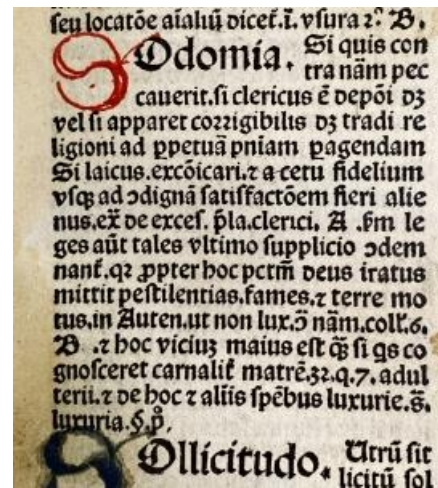 seu locatõe aĩaliũ dicet̃.ĩ. vsura 2º. B.
SOdomia. Si quis con
tra nãm pec
cauerit.si clericus ẽ depõi dꝫ
vel si apparet coꝛrigibilis dꝫ tradi re
ligioni ad ꝑpetuã pniam ꝑagendam
Si laicus.excõicari.⁊ a cetu fidelium
vsqꝫ ad ↄdignã satisfactõem fieri alie
nus.ex̃ de exces. p̃la.clerici. A .fm le
ges aũt tales vltimo supplicio ↄdem
nant̃.qꝛ ꝓpter hoc pctm̃ deus iratus
mittit pestilentias.fames.⁊ terre mo
tus.in Auten.ut non lux.ↄ̃ nãm.coll̃.6.
B .⁊ hoc viciuꝫ maius est q̃ꝫ si qs co
gnosceret carnalit̃ matrẽ.32.q.7.adul
terii.⁊ de hoc ⁊ aliis sp̃ebus luxurie.s̃.
luxuria.§.p̊.
SOllicitudo. Utrũ sit
licitũ sol